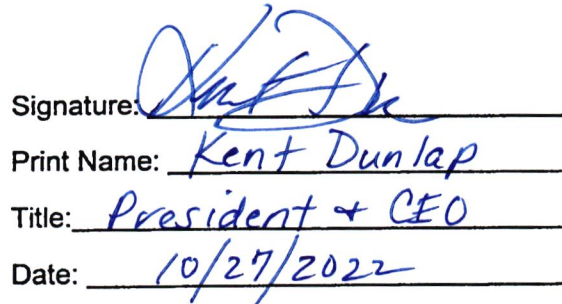 Signature:
Print Name: Kent Dunlap
Title: President + CEO
Date: 10/27/2022